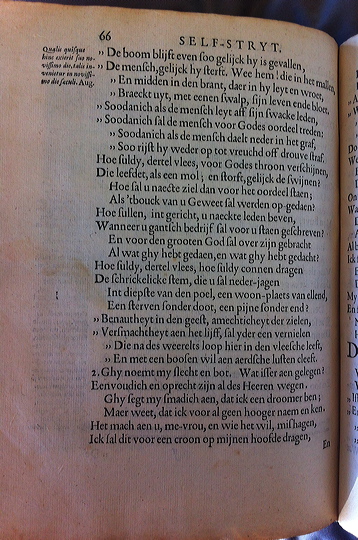 66
SELF-STRYT.
Qualis quisque
hinc exierit suo no-
vissimo die, talis in-
venietur in novissi-
mo die sæculi. Aug.
„ De boom blijft even soo gelijck hy is gevallen,
„ De mensch, gelijck hy sterft. Wee hem! die in het mallen,
„ En midden in den brant, daer in hy leyt en wroet,
„ Braeckt uyt, met eenen swalp, sijn leven ende bloet.
„ Soodanich als de mensch leyt aff sijn swacke leden,
„ Soodanich sal de mensch voor Godes oordeel treden;
„ Soodanich als de mensch daelt neder in het graf,
„ Soo rijst hy weder op tot vreucht off drouve straf.
Hoe suldy, dertel vlees, voor Godes throon verschijnen,
Die leefdet, als een mol; en storft, gelijck de swijnen?
Hoe sal u naeste ziel dan voor het oordeel staen;
Als 'tbouck van u Geweet sal werden op-gedaen?
Hoe sullen, int gericht, u naeckte leden beven,
Wanneer u gantsch bedrijf sal voor u staen geschreven?
En voor den grooten God sal over zijn gebracht
Al wat ghy hebt gedaen, en wat ghy hebt gedacht?
Hoe suldy, dertel vlees, hoe suldy connen dragen
De schrickelicke stem, die u sal neder-jagen
Int diepste van den poel, een woon-plaets van ellend,
Een sterven sonder doot, een pijne sonder end?
„ Benautheyt in den geest, amechticheyt der zielen,
„ Versmachtheyt aen het lijff, sal yder een vernielen
„ Die na des weerelts loop hier in den vleesche leeft,
„ En met een boosen wil aen aerdsche lusten cleeft.
2. Ghy noemt my slecht en bot. Wat isser aen gelegen?
Eenvoudich en oprecht zijn al des Heeren wegen.
Ghy segt my smadich aen, dat ick een droomer ben;
Maer weet, dat ick voor al geen hooger naem en ken.
Het mach aen u, me-vrou, en wie het wil, mishagen,
Ick sal dit voor een croon op mijnen hoofde dragen,
En